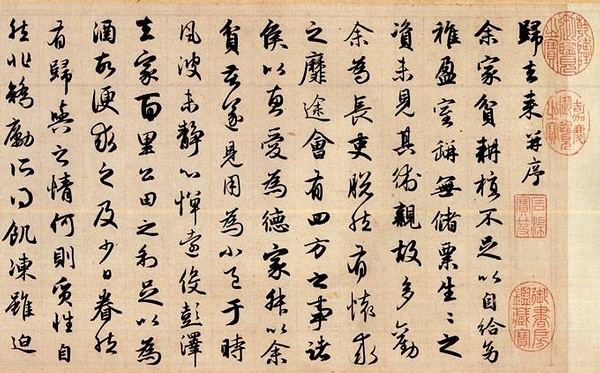 歸去来并序
余家貧耕植不足以自給幼
稚盈室缾無儲粟生生之
資未見其術親故多勸
余為長吏脫然有懷求
之靡途會有四方之事諸
侯以惠愛為德家叔以余
貧苦遂見用為小邑于時
風波未靜心憚遠役彭澤
去家百里公田之利足以為
酒故便求之及少日眷然
有歸與之情何則質性自
然非矯勵所得飢凍雖迫
乾隆御覽之寶
嘉慶御覽之寶
石渠寶笈
御書房鑑藏寶